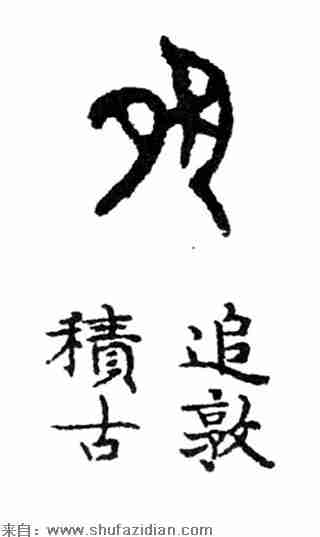 追敦
積古
来自：www.shufazidian.com